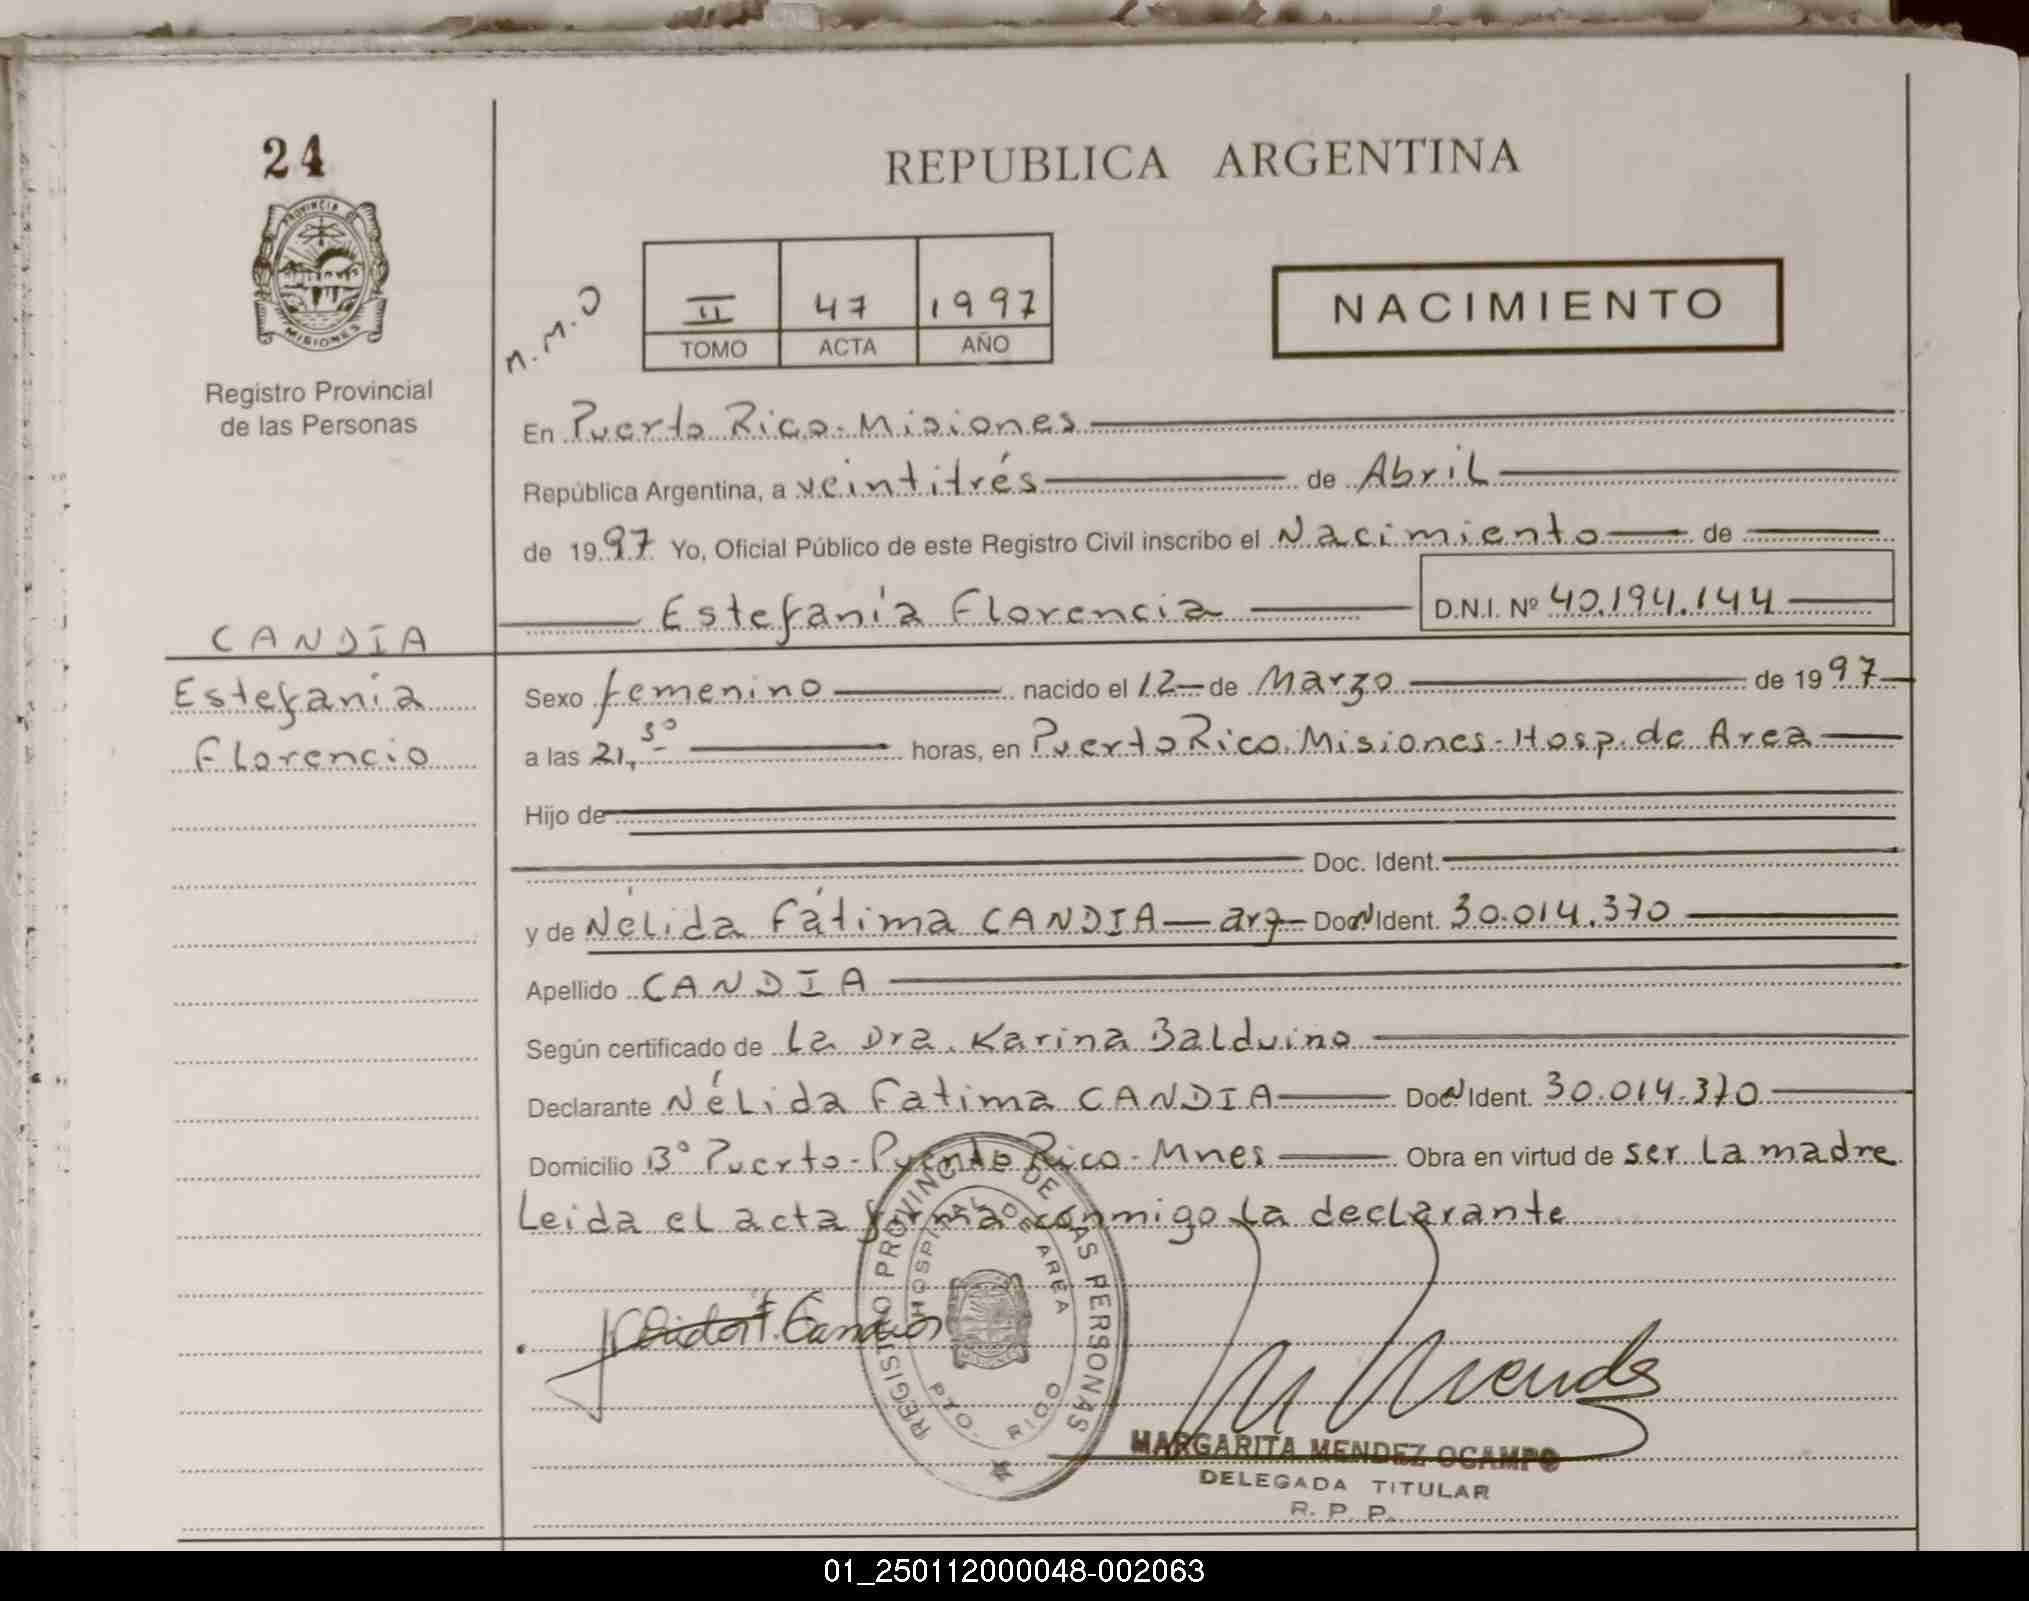 24
PROVINCIA DE
MISIONES
Registro Provincial
de las Personas
REPUBLICA ARGENTINA
N.M.O
II 47 1997
TOMO ACTA AÑO
NACIMIENTO
En Puerto Rico. Misiones
República Argentina, a veintitrés de Abril
de 1997 Yo, Oficial Público de este Registro Civil inscribo el Nacimiento de
Estefanía Florencia D.N.I. Nº 40.194.144
CANDIA
Estefanía
Florencio
Sexo femenino nacido el 12 de Marzo de 1997
a las 21,30 horas, en Puerto Rico. Misiones-Hosp. de Area
Hijo de
Doc. Ident.
y de Nélida Fátima CANDIA arg Doc. Ident. 30.014.370
Apellido CANDIA
Según certificado de La Dra. Karina Balduino
Declarante Nélida Fatima CANDIA Doc. Ident. 30.014.370
Domicilio Bº Puerto- Puerto Rico- Mnes Obra en virtud de ser la madre
Leida el acta firma conmigo la declarante
REGISTRO PROVINCIAL DE LAS PERSONAS
HOSPITAL DE AREA
PTO. RICO
MARGARITA MENDEZ OCAMPO
DELEGADA TITULAR
R. P. P.
01_250112000048-002063